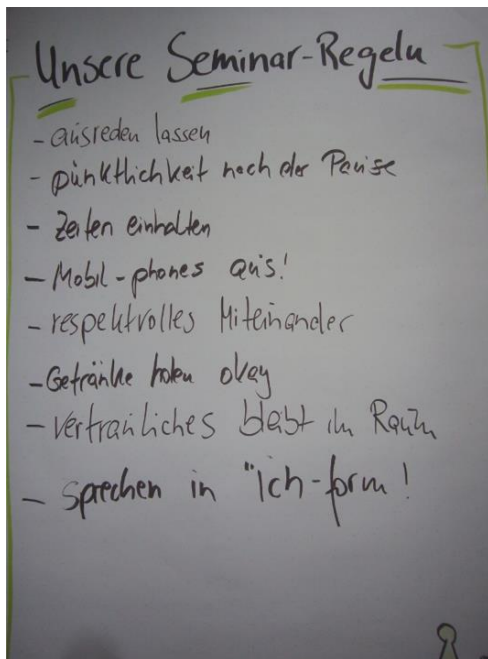 Unsere Seminar-Regeln
- ausreden lassen
- pünktlichkeit nach der Pause
- Zeiten einhalten
- Mobil-phones aus!
- respektvolles Miteinander
- Getränke holen okay
- Vertrauliches bleibt im Raum
- sprechen in "ich-form!